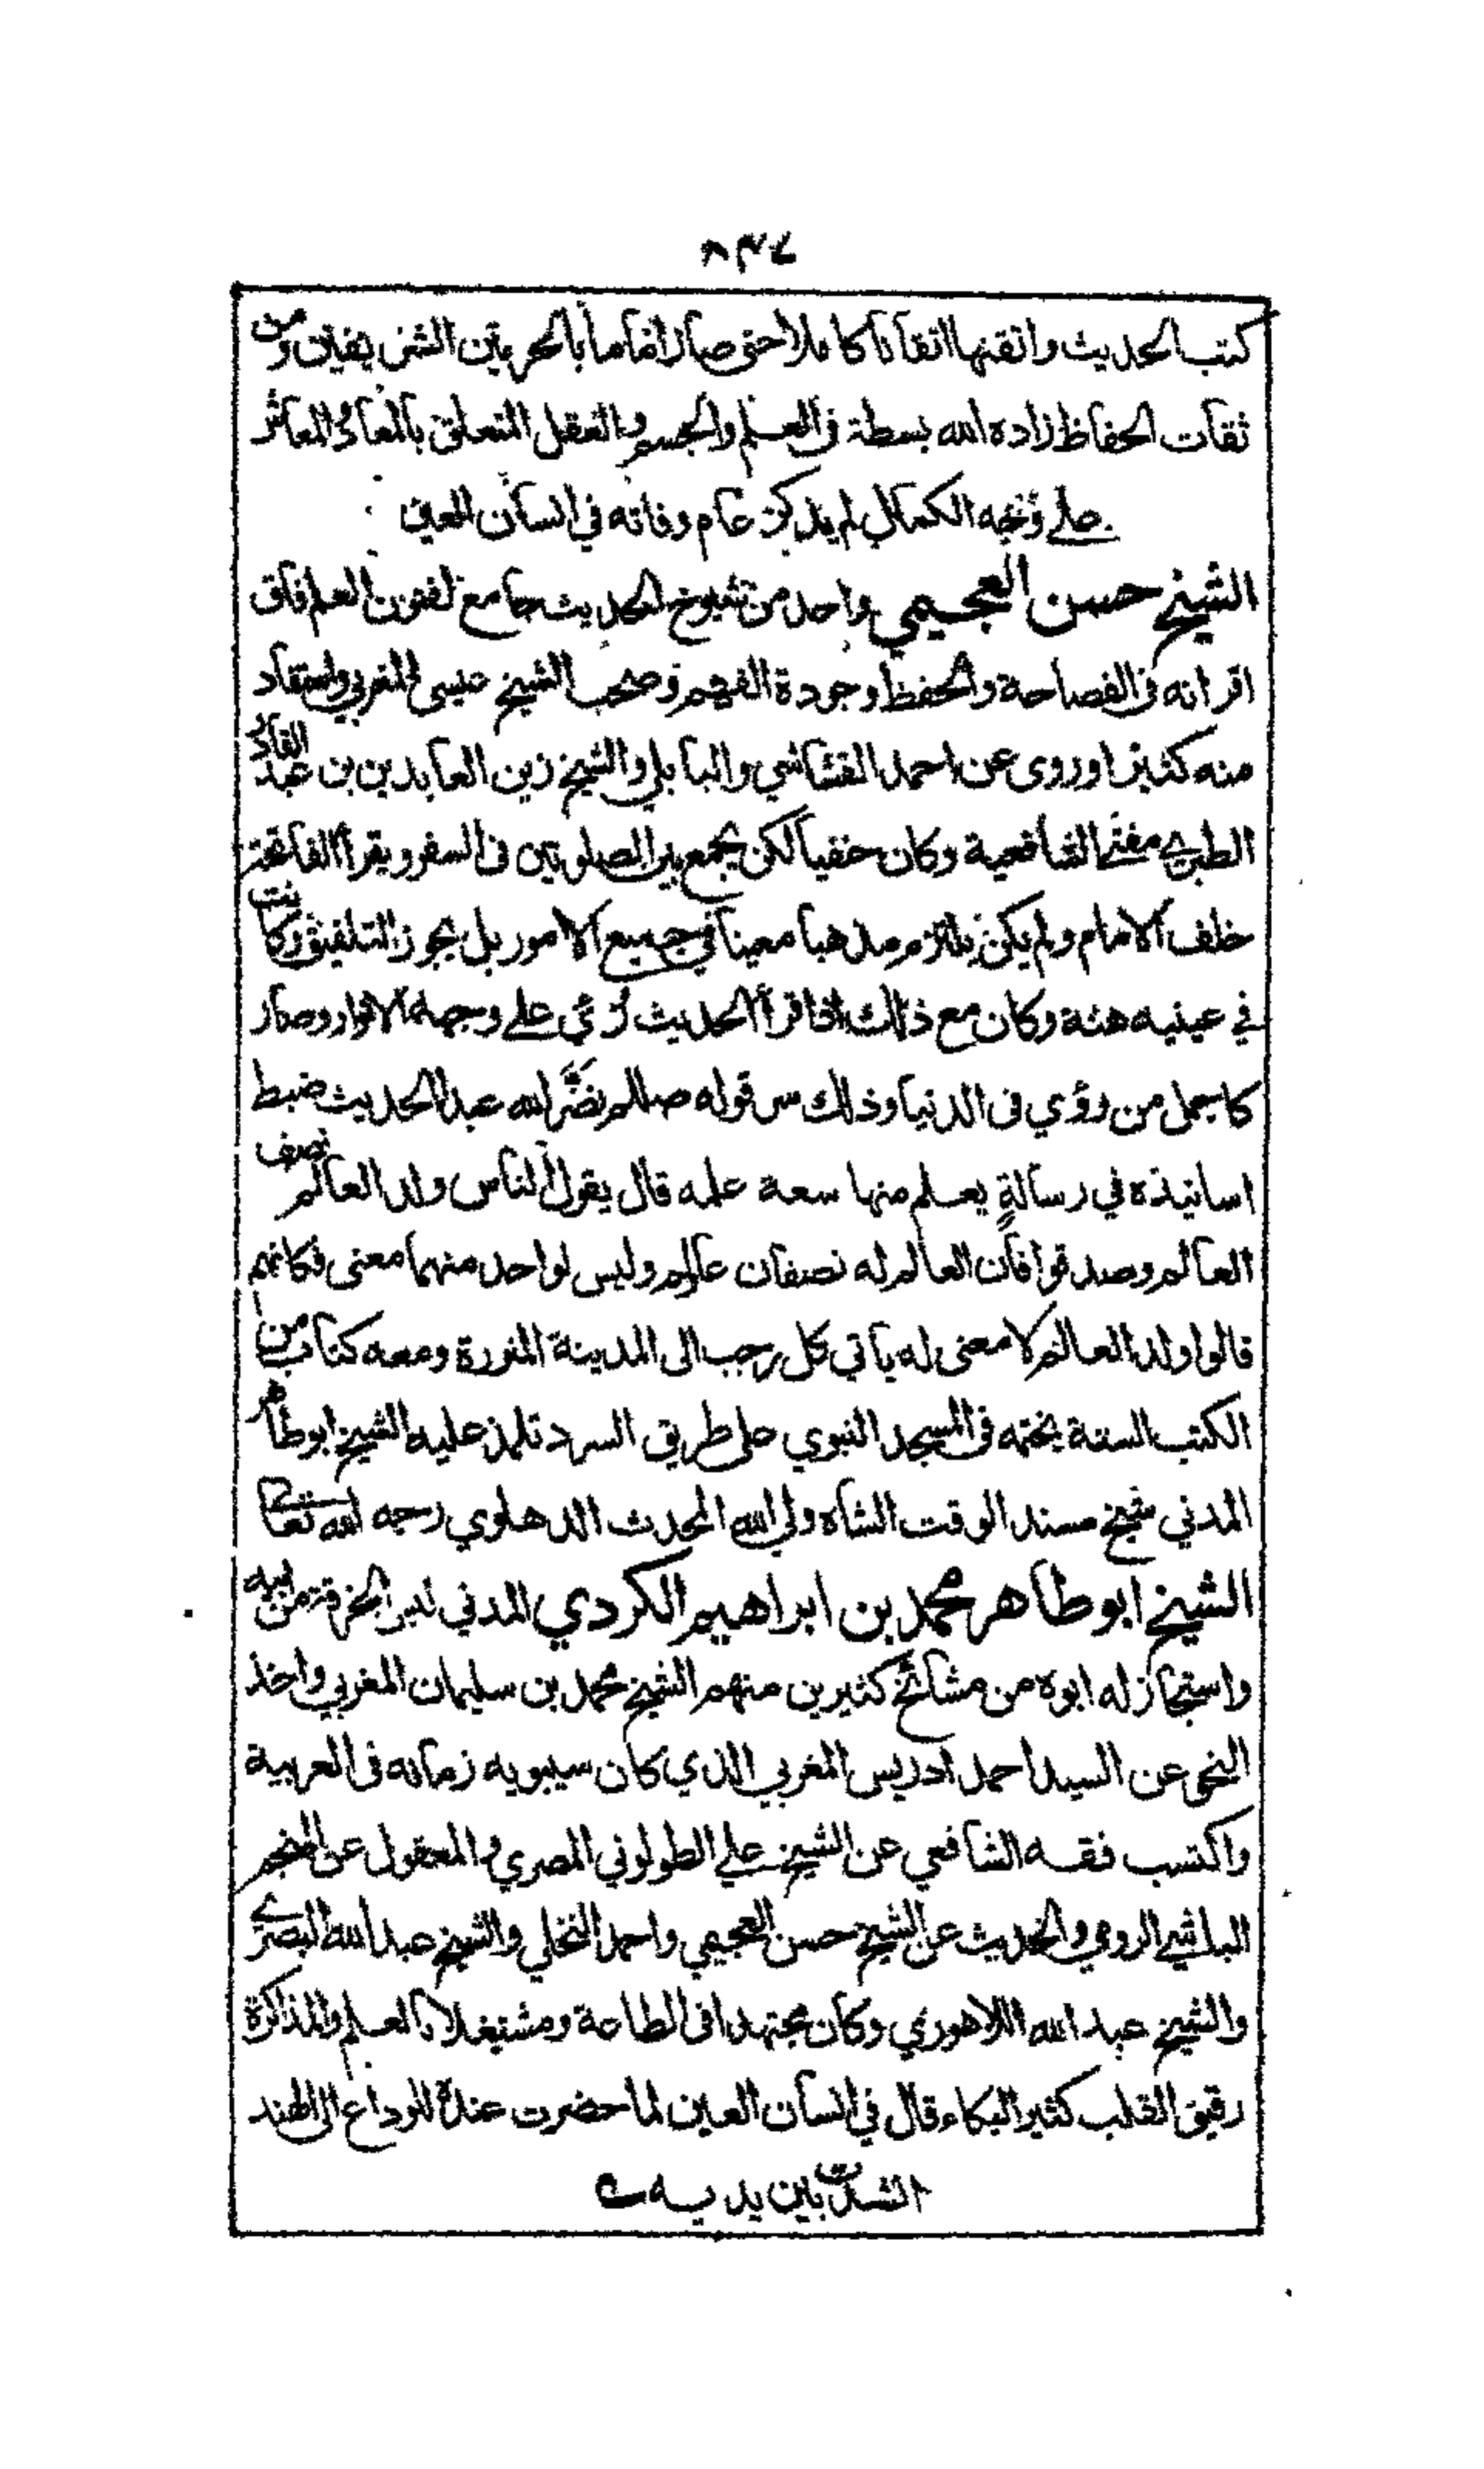 ٨٣٧
كتب الحديث واتقنها اتقانا كاملا حتى صار اماما بالحرمين الشريفين ومن
ثقات الحفاظ زاده الله بسطة في العلم والجسم والعقل المتعلق بالمعاد والمعاش
على وجه الكمال لم يذكر عام وفاته في انسان العين
الشيخ حسن العجيمي واحد من شيوخ الحديث جامع لفنون العلم فاق
اقرانه في الفصاحة والحفظ وجودة الفهم وصحب الشيخ عيسى المغربي واستفاد
منه كثيرا وروى عن احمد القشاشي والبابلي والشيخ زين العابدين بن عبد القادر
الطبري مفتي الشافعية وكان حنفيا لكن يجمع بين الصلوتين في السفر ويقرأ الفاتحة
خلف الامام ولم يكن يلتزم مذهبا معينا في جميع الامور بل يجوز التلفيق وكانت
في عينيه هنة وكان مع ذلك اذا قرأ الحديث رئي على وجهه الانوار وصار
كاجمل من رؤي في الدنيا وذلك سر قوله صللم نضّر الله عبدا الحديث ضبط
اسانيذه في رسالةٍ يعلم منها سعة علمه قال يقول الناس ولد العالم نصف
العالم وصدقوا فان العالم له نصفان عالم وليس لواحد منهما معنى فكانهم
قالوا ولد العالم لا معنى له ياتي كل رجب الى المدينة المنورة ومعه كتاب من
الكتب الستة يختمه في المسجد النبوي على طريق السرد تلمذ عليه الشيخ ابو طاهر
المدني شيخ مسند الوقت الشاه ولي الله المحدث الدهلوي رحمه الله تعالى
الشيخ ابو طاهر محمد بن ابراهيم الكردي المدني لبس الخرقة من ابيه
واستجاز له ابوه من مشائخ كثيرين منهم الشيخ محمد بن سليمان المغربي واخذ
النحو عن السيد احمد ادريس المغربي الذي كان سيبويه زمانه في العربية
واكتسب فقه الشافعي عن الشيخ علي الطولوني المصري والمعقول عن المنجم
الباشي الرومي والحديث عن الشيخ حسن العجيمي واحمد النخلي والشيخ عبد الله البصري
والشيخ عبد الله اللاهوري وكان مجتهدا في الطاعة ومشتغلا بالعلم والمذاكرة
رقيق القلب كثير البكاء قال في انسان العين لما حضرت عنده للوداع الى الهند
انشدت بين يديه